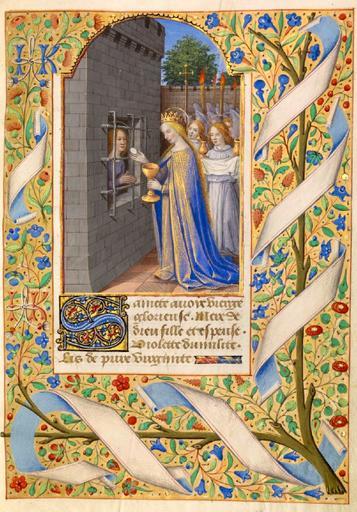 Saincte auoie vierge
glorieuse. Mere de
dieu fille et espeuse.
Violette dumilite.
Lis de pure virginite